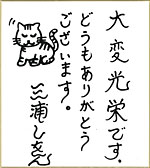 大変光栄です.
どうもありがとう
ございます!
三浦しをん